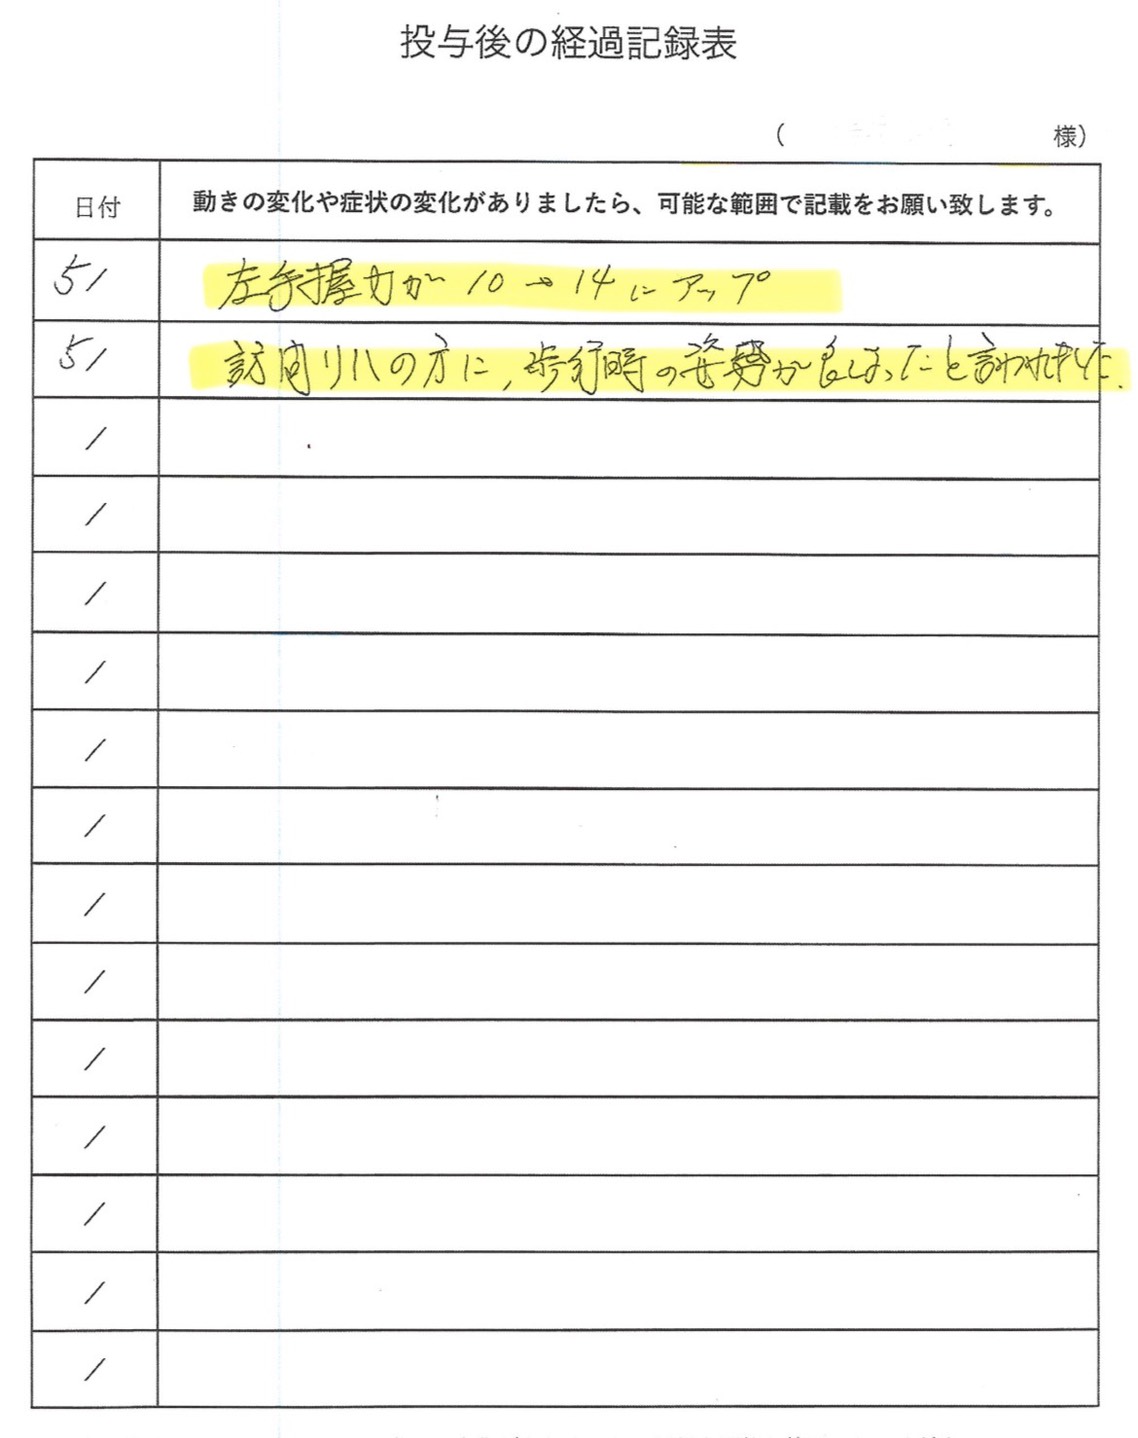 投与後の経過記録表
( 様)
日付 動きの変化や症状の変化がありましたら、可能な範囲で記載をお願い致します。
5/ 左手握力が 10→14にアップ
5/ 訪問リハの方に,歩行時の姿勢が良くなったと言われました.
/
/
/
/
/
/
/
/
/
/
/
/
/